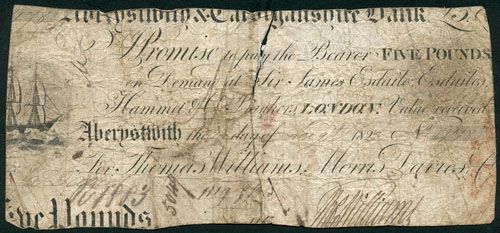 Aberystwith & Cardiganshire Bank
I Promise to pay the Bearer FIVE POUNDS
on Demand at Sir James Esdaile, Esdaile,
Hammet & Bankers, LONDON. Value received
Aberystwith the day of 182
For Thomas Williams, Morris Davies, &
Five Pounds